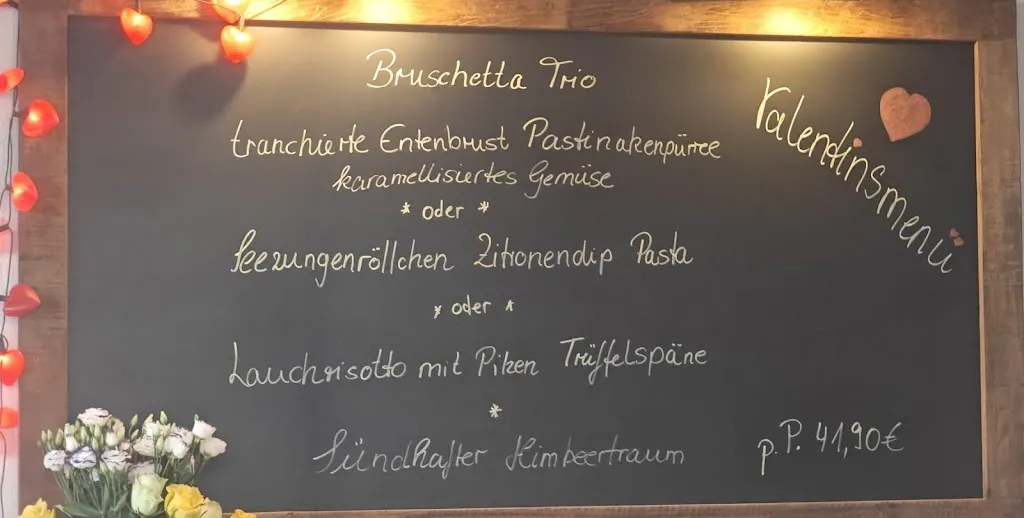 Bruschetta Trio
Valentinsmenü
tranchierte Entenbrust Pastinakenpürree
karamellisiertes Gemüse
* oder *
Seezungenröllchen Zitronendip Pasta
* oder *
Lauchrisotto mit Pilzen Trüffelspäne
*
Sündhafter Himbeertraum
p.P. 41,90€